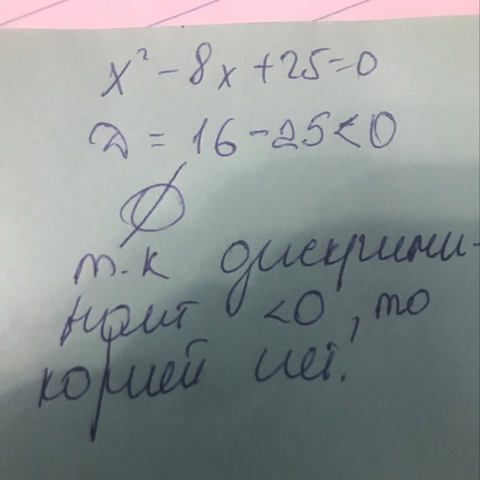 x² - 8x + 25 = 0
D = 16 - 25 < 0
∅
т.к дискрими-
нант < 0, то
корней нет!